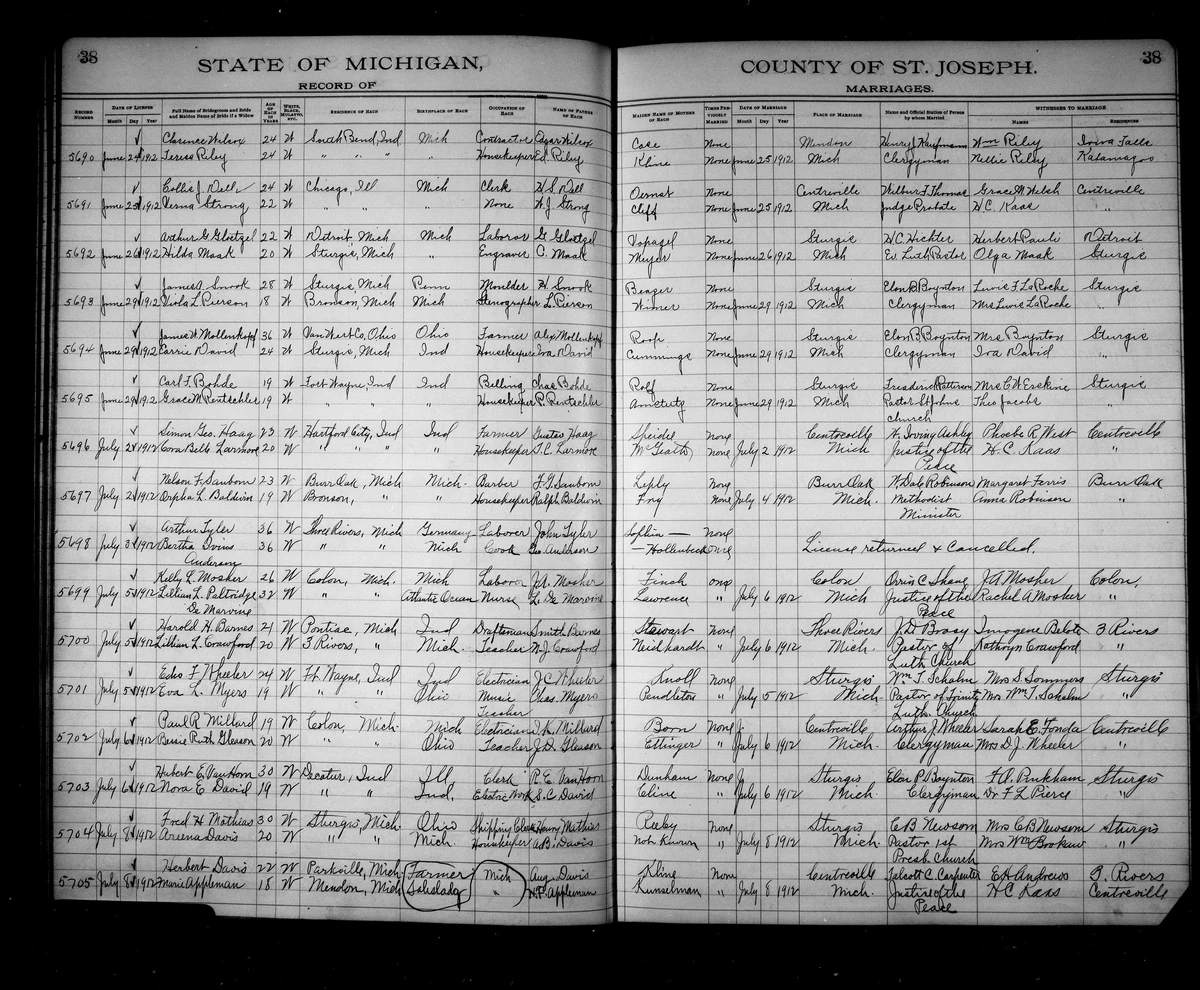 38
STATE OF MICHIGAN,
RECORD OF
RECORD NUMBER DATE OF LICENSE Month Day Year Full Name of Bridegroom and Bride and Maiden Name of Bride if a Widow AGE OF EACH IN YEARS WHITE, BLACK, MULATTO, ETC. RESIDENCE OF EACH BIRTHPLACE OF EACH OCCUPATION OF EACH NAME OF FATHER OF EACH
Clarence Wilcox 24 W South Bend, Ind Mich Contractor Edgar Wilcox
5690 June 24 1912 Teresa Riley 24 W " " " Housekeeper Ed Riley
Collis J. Dell 24 W Chicago, Ill Mich Clerk H S Dell
5691 June 25 1912 Verna Strong 22 W " " " None W. J. Strong
Arthur G. Gloetzel 22 W Detroit, Mich Mich Laborer G. Gloetzel
5692 June 26 1912 Hilda Maak 20 W Sturgis, Mich " Engraver C. Maak
James A. Snook 28 W Sturgis, Mich Penn Moulder H Snook
5693 June 29 1912 Viola L. Pierson 18 W Bronson, Mich Mich Stenographer L. Pierson
James W. Mollenkopf 36 W Van Wert Co, Ohio Ohio Farmer Alex Mollenkopf
5694 June 29 1912 Carrie David 24 W Sturgis, Mich Ind Housekeeper Iva David
Carl F. Bohde 19 W Fort Wayne, Ind Ind Chas Bohde
5695 June 29 1912 Grace M Rentschler 19 W " " " Housekeeper P. Rentschler
Simon Geo. Haag 23 W Hartford City, Ind Ind Farmer Gustas Haag
5696 July 2 1912 Cora Belle Larmore 20 W " " " Housekeeper T. C. Larmore
Nelson F. Sanborn 23 W Burr Oak, Mich Mich. Barber F. G. Sanborn
5697 July 2 1912 Orpha L. Baldwin 19 W Bronson, " " Housekeeper Ralph Baldwin
Arthur Tyler 36 W Three Rivers, Mich Germany Laborer John Tyler
5698 July 3 1912 Bertha Ivins 36 W " " Mich Cook Geo. Anderson
Anderson
Kelly L. Mosher 26 W Colon, Mich. Mich Laborer J.A. Mosher
5699 July 5 1912 Lillian L. Paltridge 32 W " " Atlantic Ocean Nurse L. De Marvine
De Marvine
Harold H. Barnes 21 W Pontiac, Mich Ind Draftsman Smith Barnes
5700 July 5 1912 Lillian L. Crawford 20 W 3 Rivers, " Mich. Teacher N. J. Crawford
Edw F. Wheeler 24 W Ft. Wayne, Ind Ind Electrician J. C. Wheeler
5701 July 5 1912 Eva L. Myers 19 W " " Ohio Music Chas. Myers
Teacher
Paul R. Millard 19 W Colon, Mich. Mich Electrician J. K. Millard
5702 July 6 1912 Bessie Ruth Gleason 20 W " " Ohio Teacher J. D. Gleason
Hubert E. Van Horn 30 W Decatur, Ind Ill Clerk R. E. Van Horn
5703 July 6 1912 Nora E David 19 W " " Ind. Electric Work S. C. David
Fred H. Mathias 30 W Sturgis, Mich. Ohio Shipping Clerk Henry Mathias
5704 July 8 1912 Areena Davis 20 W " " Mich. Housekeeper A. B. Davis
Herbert Davis 22 W Parkville, Mich Farmer Mich Aug. Davis
5705 July 8 1912 Marie Appleman 18 W Mendon, Mich " H. P. Appleman
38
COUNTY OF ST. JOSEPH.
MARRIAGES.
MAIDEN NAME OF MOTHER OF EACH TIMES PREVIOUSLY MARRIED DATE OF MARRIAGE Month Day Year PLACE OF MARRIAGE Name and Official Station of Person by whom Married. WITNESSES TO MARRIAGE NAMES RESIDENCES
Case None Mendon Henry J Kaufmann Wm Riley Iowa Falls
Kline None June 25 1912 Mich Clergyman Nellie Riley Kalamazoo
None Centreville Wilbur F. Thomas Grace M Welch Centreville
Cliff None June 25 1912 Mich Judge Probate H. C. Kaas "
Vopagel None Sturgis H C Richter Herbert Pauli Detroit
Meyer None June 26 1912 Mich Ev. Luth Pastor Olga Maak Sturgis
None Sturgis Elon P Boynton Lewis F La Roche Sturgis
Winner None June 29 1912 Mich Clergyman Mrs Lewis La Roche "
Roop None Sturgis Elon P Boynton Mrs Boynton Sturgis
Cummings None June 29 1912 Mich Clergyman Iva David "
Rolf None Sturgis Frederick Patterson Mrs C W Erskine Sturgis
Amstutz None June 29 1912 Mich Pastor St Johns Theo Jacobs "
Church
Speidel None Centreville W. Irving Ashley Phoebe R. West Centreville
McGeath None July 2 1912 Mich Justice of the H. C. Kaas "
Peace
Leply None Burr Oak W. Dale Robinson Margaret Ferris Burr Oak
Fry None July 4 1912 Mich. Methodist Anna Robinson "
Minister
Sophia — None
— Hollenbeck one License returned & cancelled.
Finch one Colon Orrin C. Shane J A Mosher Colon,
Lawrence " July 6 1912 Mich Justice of the Rachel A Mosher "
Peace
Stewart None Three Rivers J. D. Brosy Imogene Belote 3 Rivers
Neidhardt " July 6 1912 Mich. Pastor of Kathryn Crawford "
Luth Church
Knoll None Sturgis Wm. T. Schalm Mrs S. Sommers Sturgis
Pendleton " July 5 1912 Mich. Pastor of Trinity Mrs Wm. T. Schalm "
Luth. Church
Born None Centreville Arthur J Wheeler Sarah E. Fonda Centreville
Ettinger " July 6 1912 Mich. Clergyman Mrs D. J. Wheeler "
Dunham None Sturgis Elon P Boynton F. V. Pinkham Sturgis
Cline " July 6 1912 Mich. Clergyman Dr F L Pierce "
Reeby None Sturgis C B Newsom Mrs C B Newsom Sturgis
not known " July 8 1912 Mich. Pastor 1st Mrs Wm Brokaw "
Presb. Church
Kline None Centreville Talcott C. Carpenter E H Andrews 3. Rivers
Kunselman " July 8 1912 Mich. Justice of the H C Kaas Centreville
Peace